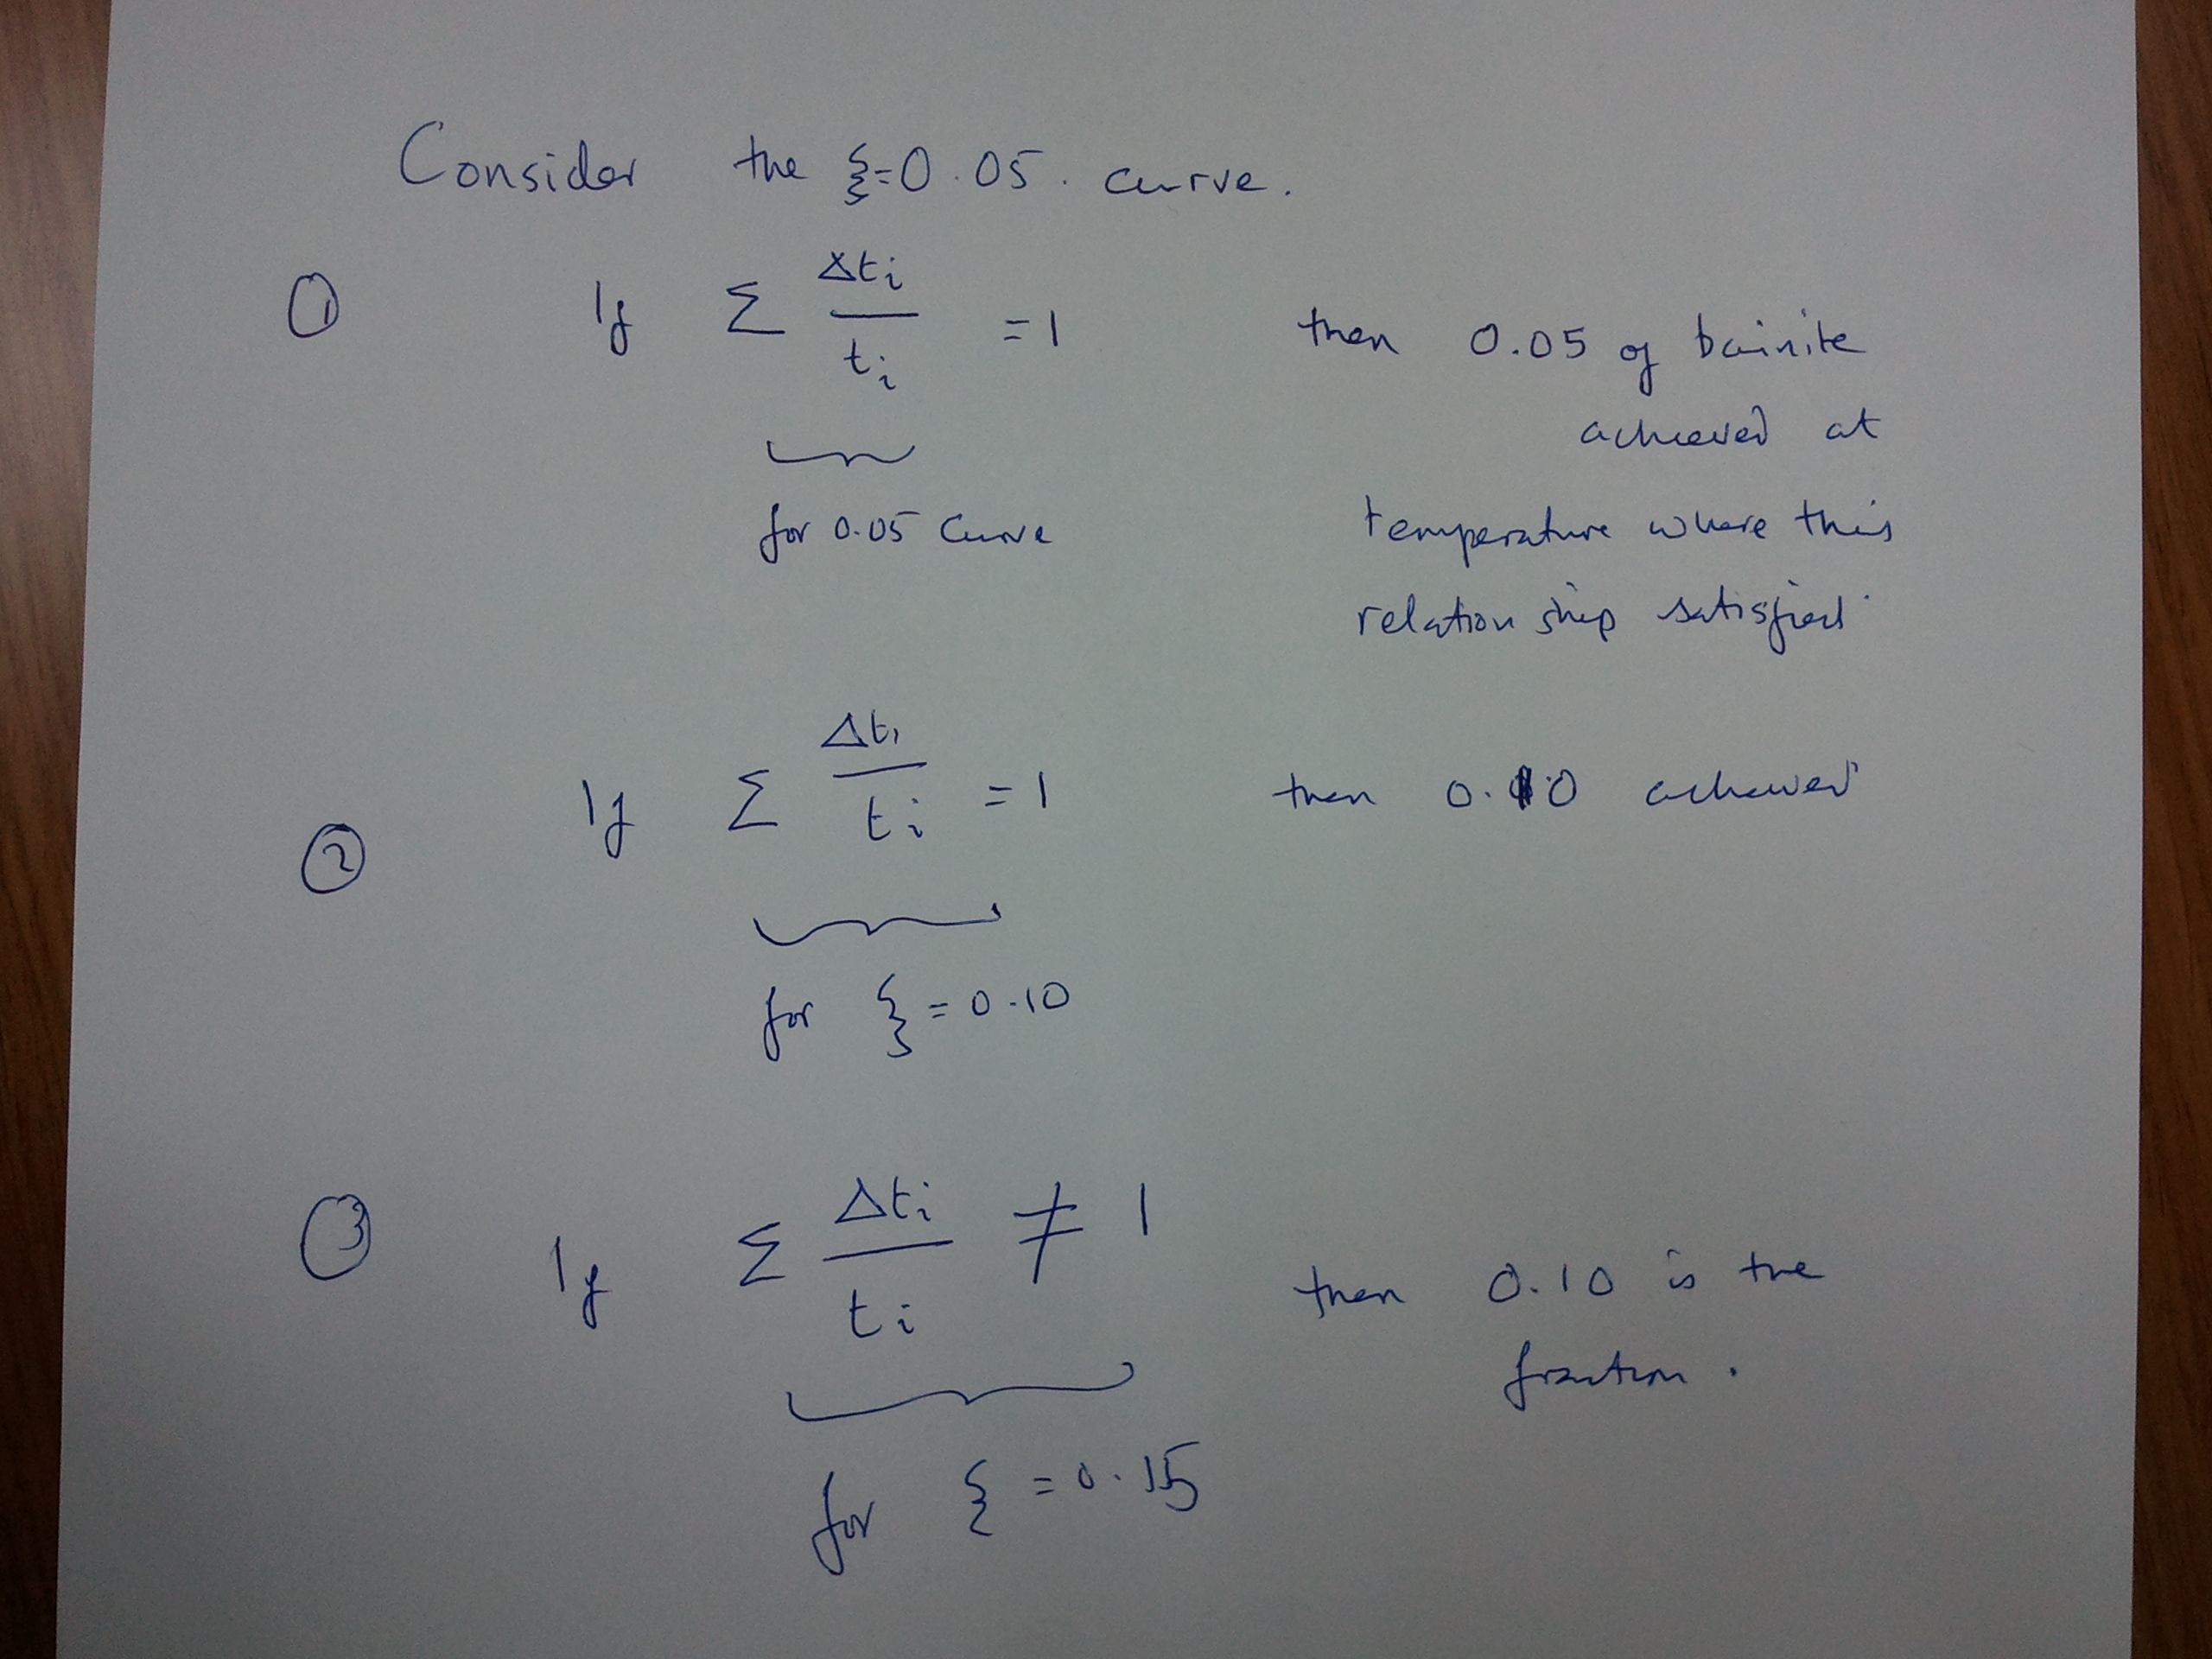 Consider the ξ=0.05. curve.
① If Σ Δti/ti = 1 then 0.05 of bainite
achieved at
for 0.05 Curve temperature where this
relationship satisfied.
② If Σ Δti/ti = 1 then 0.10 achieved
for ξ = 0.10
③ If Σ Δti/ti ≠ 1 then 0.10 is the
fraction.
for ξ = 0.15